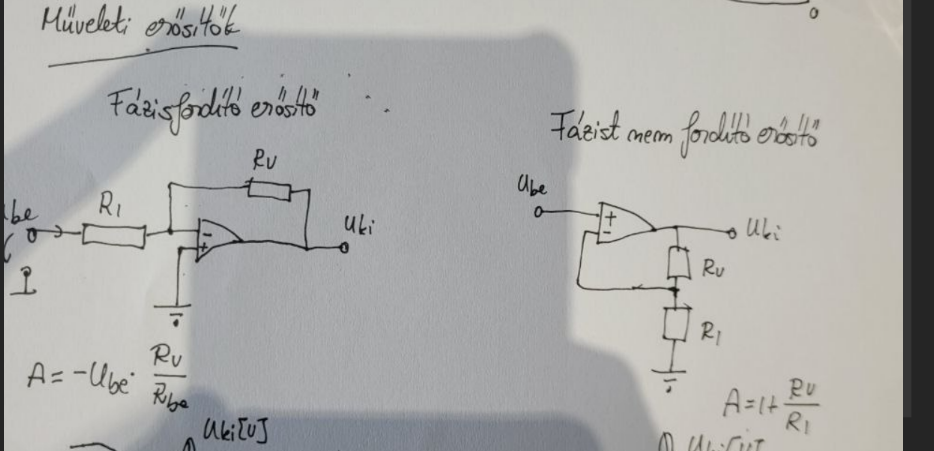 Műveleti erősítők
Fázisfordító erősítő
Rv
R1
Ube
Uki
I
A = -Ube · Rv/Rbe
Uki[V]
Fázist nem fordító erősítő
Ube
Uki
Rv
R1
A = 1 + Rv/R1
Uki[V]